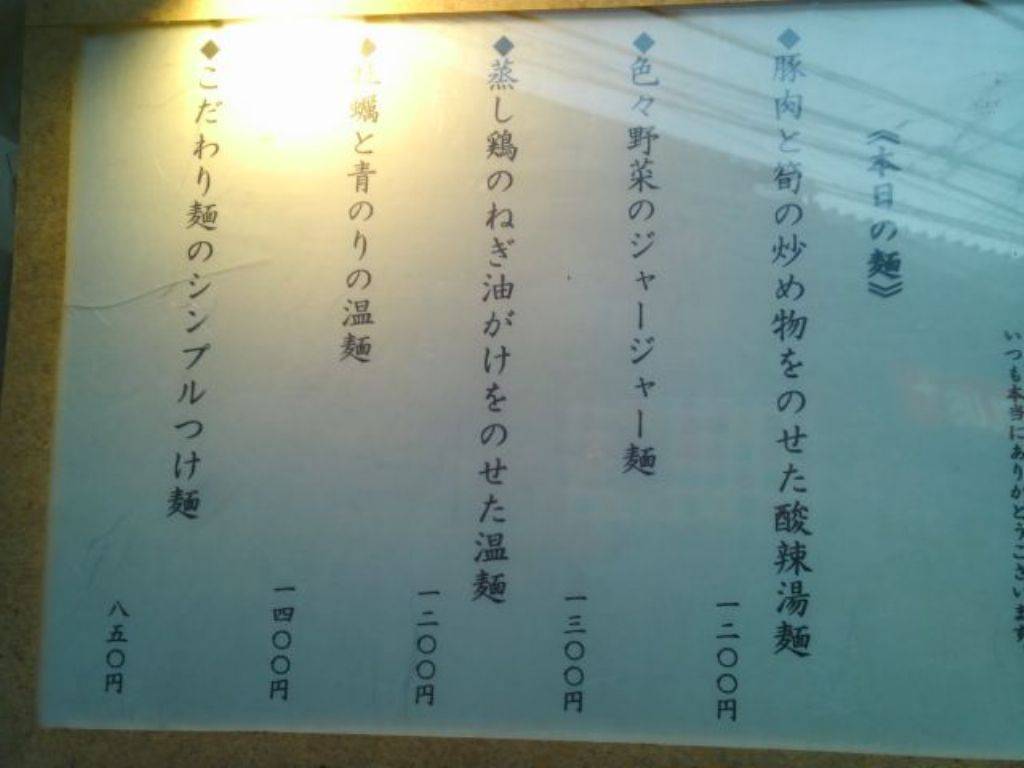 いつも本当にありがとうございます
《本日の麺》
◆豚肉と筍の炒め物をのせた酸辣湯麺
一二〇〇円
◆色々野菜のジャージャー麺
一三〇〇円
◆蒸し鶏のねぎ油がけをのせた温麺
一二〇〇円
◆牡蠣と青のりの温麺
一四〇〇円
◆こだわり麺のシンプルつけ麺
八五〇円